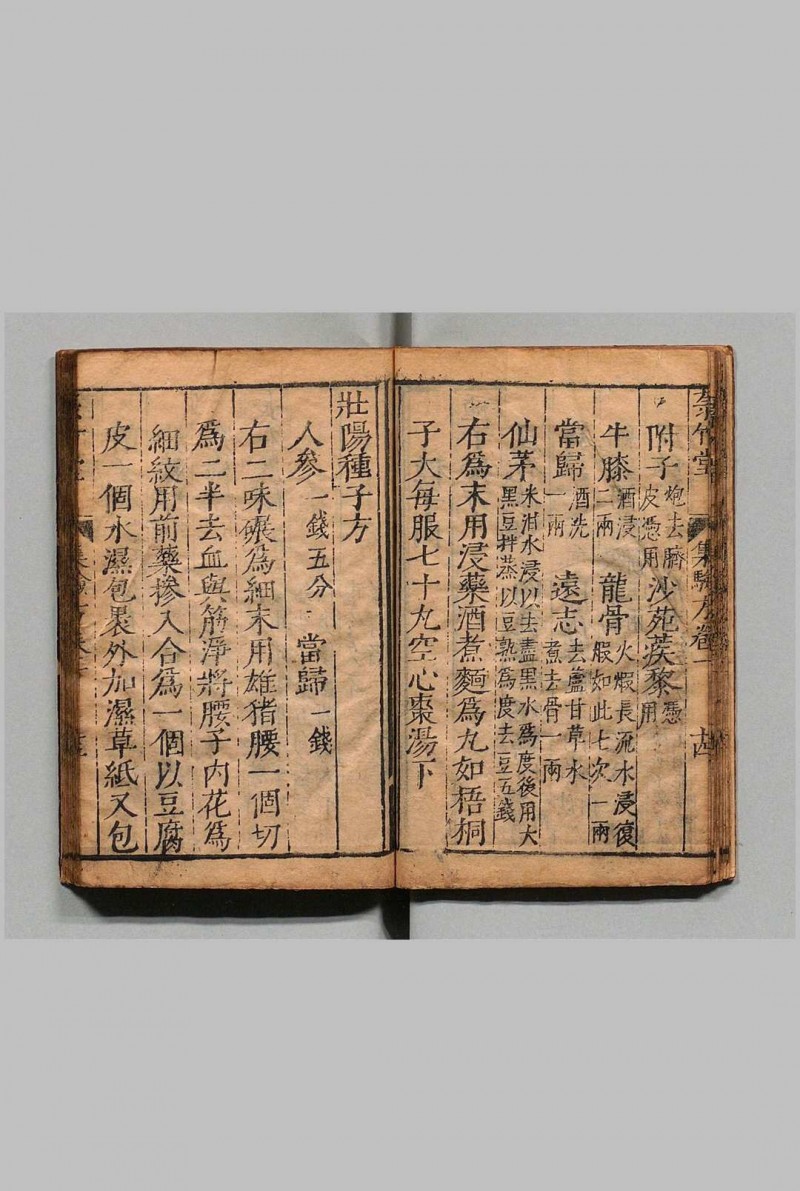 集驗方卷一
附子炮去臍皂憑用沙苑蒺藜憑用
牛膝酒浸二兩龍骨火煆長流水浸復煆如此七次一兩
當歸酒洗一兩遠志去蘆甘草水煮去骨一兩
仙茅米泔水浸以去盡黑水爲度後用大黑豆拌蒸以豆熟爲度去豆五錢
右爲末用浸藥酒煮麵爲丸如梧桐
子大每服七十丸空心棗湯下
壯陽種子方
人參一錢五分當歸一錢
右二味碾爲細末用雄猪腰一個切
爲二半去血與筋淨將腰子内花爲
細紋用前藥摻入合爲一個以豆腐
皮一個水濕包裹外加濕草紙又包